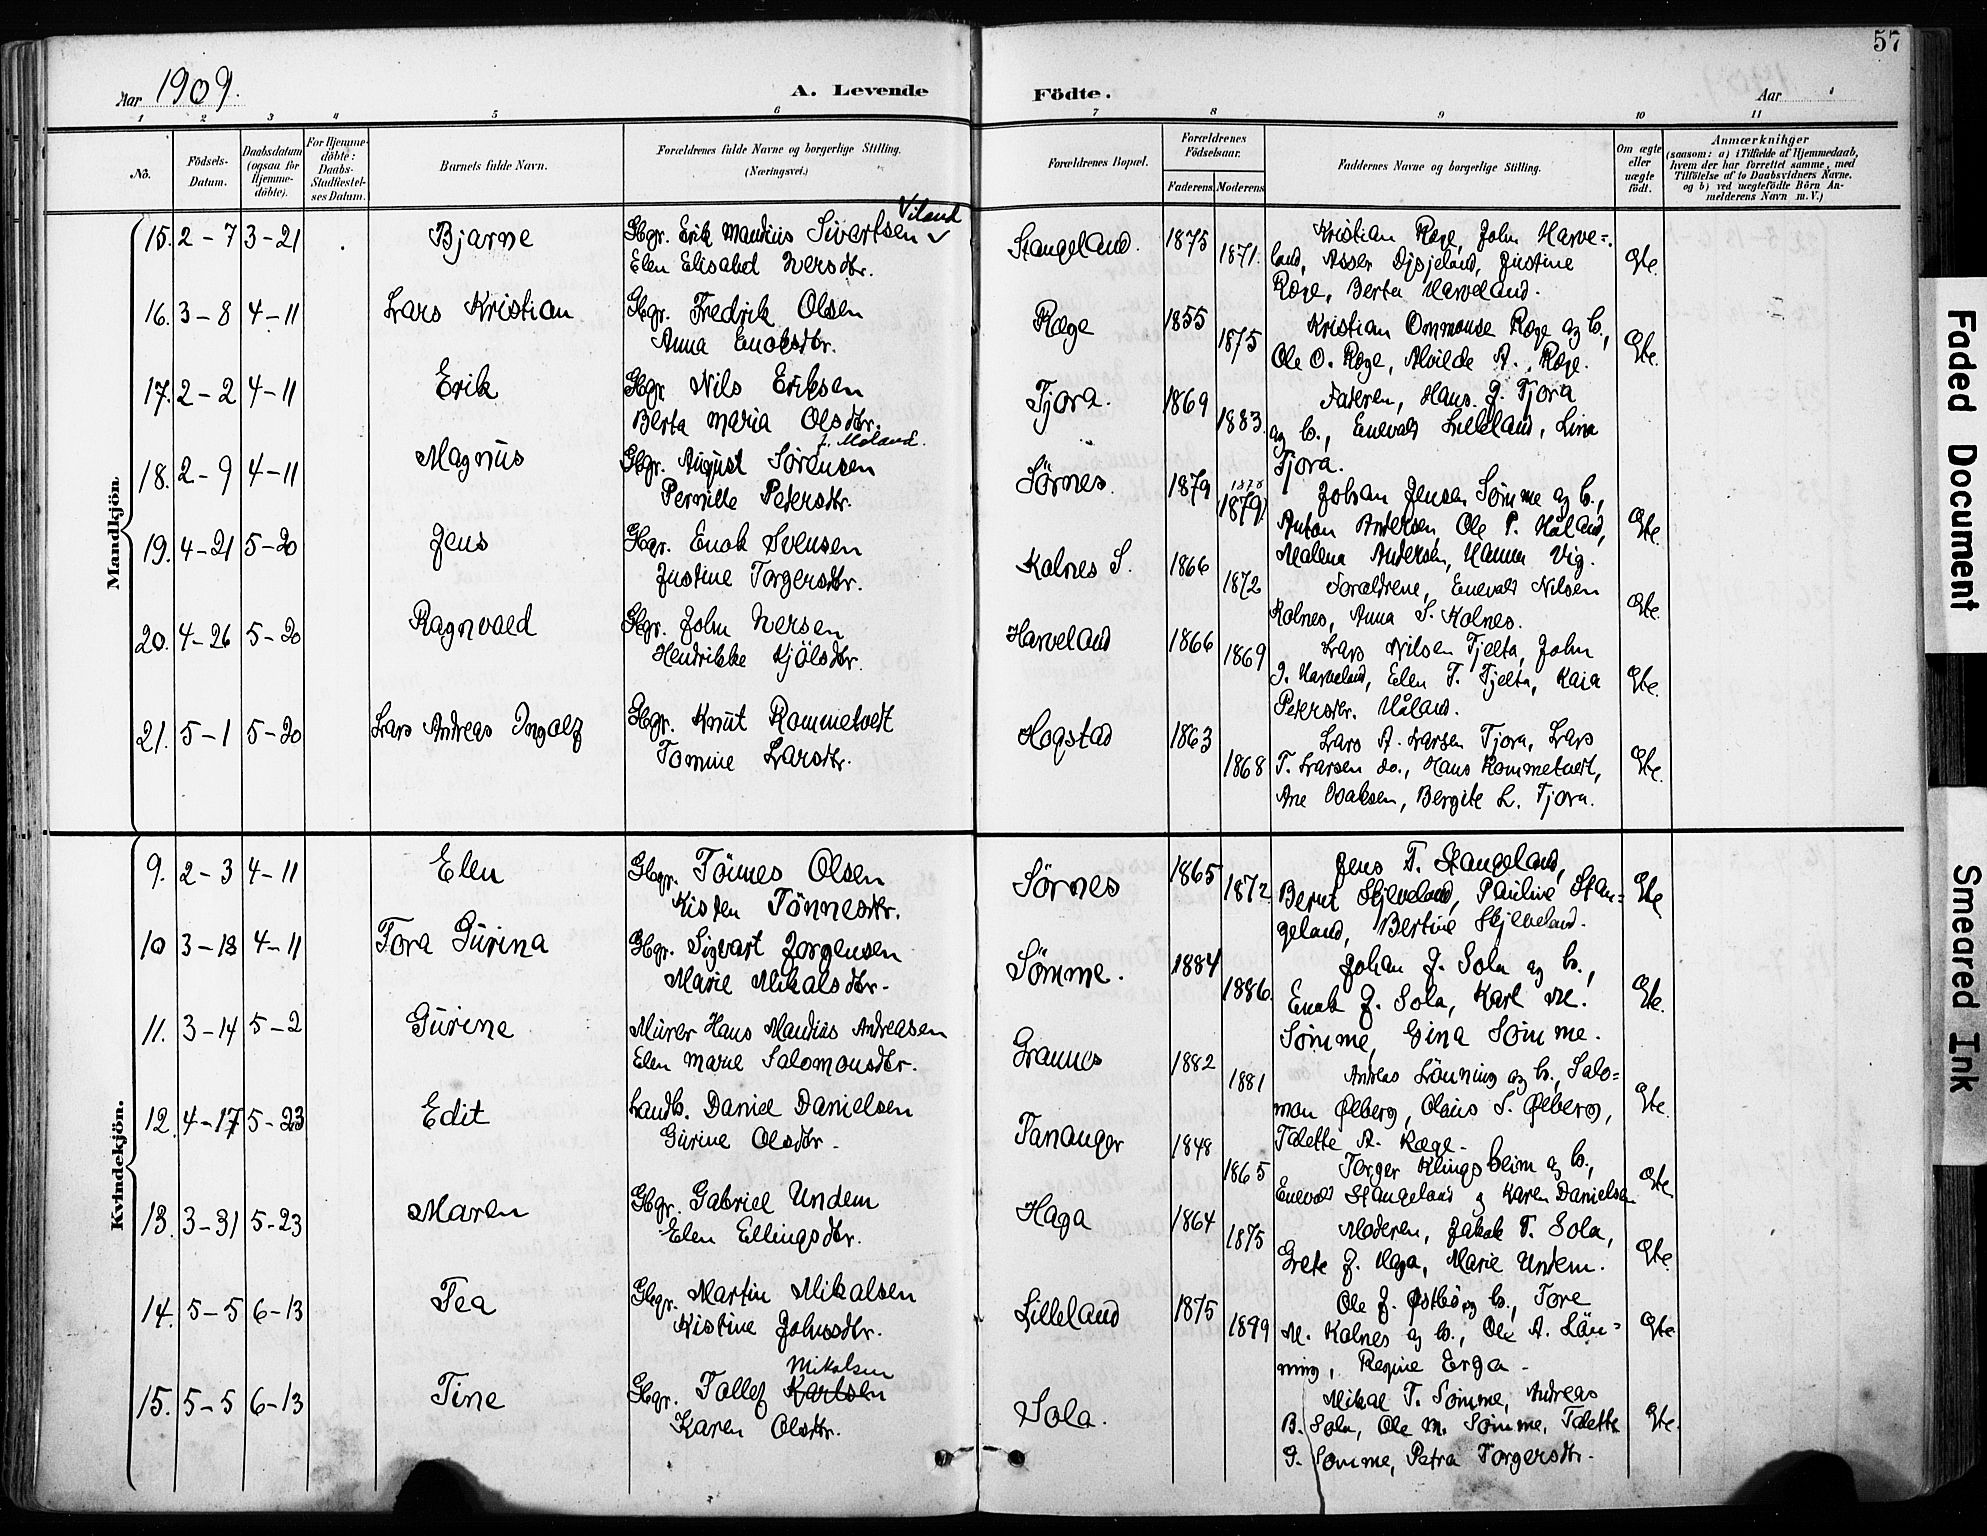 57
Aar 1909.
A. Levende Födte.
Aar
1 2 3 4 5 6 7 8 9 10 11
No.
Födsels-Datum.
Daabsdatum (ogsaa for Hjemme-döbte).
For Hjemme-döbte: Daabs-Stadfæstel-ses Datum.
Barnets fulde Navn.
Forældrenes fulde Navne og borgerlige Stilling. (Næringsvei.)
Forældrenes Bopæl.
Forældrenes Födselsaar.
Faderens Moderens
Faddernes Navne og borgerlige Stilling.
Om ægte eller uægte födt.
Anmærkninger
(saasom: a) i Tilfælde af Hjemmedaab, hvem der har forrettet samme, med Tilföielse af to Daabsvidners Navne, og b) ved uægtefödte Börn An-melderens Navn m. V.)
Mandkjön.
15. 2-7 3-21 Bjarne Gbgr. Erik Maudius Sivertsen Viland
Elen Elisabet Iversdtr.
Stangeland. 1875 1871.
Kristian Ræge, John Harve=
land, Asser Dysjeland, Justine
Ræge, Berta Harveland.
Gte.
16. 3-8 4-11 Lars Kristian Gbgr. Fredrik Olsen
Anna Enoksdtr.
Ræge 1855 1875
Kristian Ommonse Ræge og h.,
Ole O. Ræge, Alvilde A. Ræge.
Gte.
17. 2-2 4-11 Erik Gbgr. Nils Eriksen
Berta Maria Olsdtr.
Tjora. 1869 1883.
Faderen, Hans J. Tjora
og h., Enevald Lilleland, Lina
Tjora.
18. 2-9 4-11 Magnus Gbgr. August Sörensen f. Moland.
Pernille Petersdtr.
Sörnes. 1879 1878 1879
Johan Jensen Sömme og h.,
Anton Andersen, Ole P. Håland,
Malena Andersen, Hanna Vig.
Gte.
19. 4-21 5-20 Jens Gbgr. Enok Svensen
Justine Torgersdtr.
Kolnes S. 1866 1872
Forældrene, Enevald Nilsen
Kolnes, Anna S. Kolnes.
Gte.
20. 4-26 5-20 Ragnvald Gbgr. John Iversen
Hendrikke Kjölsdtr.
Harveland 1866 1869
Lars Nilsen Tjelta, John
J. Harveland, Elen T. Tjelta, Kaia
Petersdtr. Håland.
Gte.
21. 5-1 5-20 Lars Andreas Ingolf Gbgr. Knut Rommetvedt
Tomine Larsdtr.
Hogstad 1863 1868
Lars A. Larsen Tjora, Lars
T. Larsen do., Hans Rommetvedt,
Ane Isaksen, Bergite L. Tjora.
Gte.
Kvindekjön.
9. 2-3 4-11 Elen Gbgr. Tönnes Olsen
Kisten Tönnesdtr.
Sörnes 1865 1872
Jens T. Stangeland,
Bernt Skjeveland, Pauline Stan=
geland, Bertine Skjeveland.
Gte
10 3-18 4-11 Tora Gurina Gbgr. Sigvart Jorgensen
Marie Mikalsdtr.
Sömme. 1884 1886.
Johan J. Sola og h.,
Enok J. Sola, Karl M.
Sömme, Gina Sömme.
Gte.
11. 3-14 5-2 Gurine Murer Hans Maudius Andreasen
Elen Marie Salomonsdtr.
Grannes 1882 1881
Andreas Lönning og h., Salo=
mon Ølberg, Olaus S. Ølberg,
Tolette A. Ræge.
Gte.
12. 4-17 5-23 Edit Landh. Daniel Danielsen
Gurine Olsdtr.
Tananger 1848 1865
Torger Klingsheim og h.,
Enevald Stangeland og Karen Danielsen
Gte.
13. 3-31 5-23 Maren Gbgr. Gabriel Undem
Elen Ellingsdtr.
Haga 1864 1875
Moderen, Jakob T. Sola,
Grete J. Haga, Marie Undem.
Gte.
14. 5-5 6-13 Tea Gbgr. Martin Mikalsen
Kistine Johnsdtr.
Lilleland 1875 1899
Ole J. Østbö og h., Tore
M. Kolnes og h., Ole A. Lön=
ning, Regine Erga.
Gte.
15. 5-5 6-13 Tine Gbgr. Tollef Karlsen Mikalsen
Karen Olsdtr.
Sola.
Mikal T. Sömme, Andreas
B. Sola, Ole M. Sömme, Tolette
G. Sömme, Petra Torgersdtr.
Gte.
Faded Document
Smeared Ink